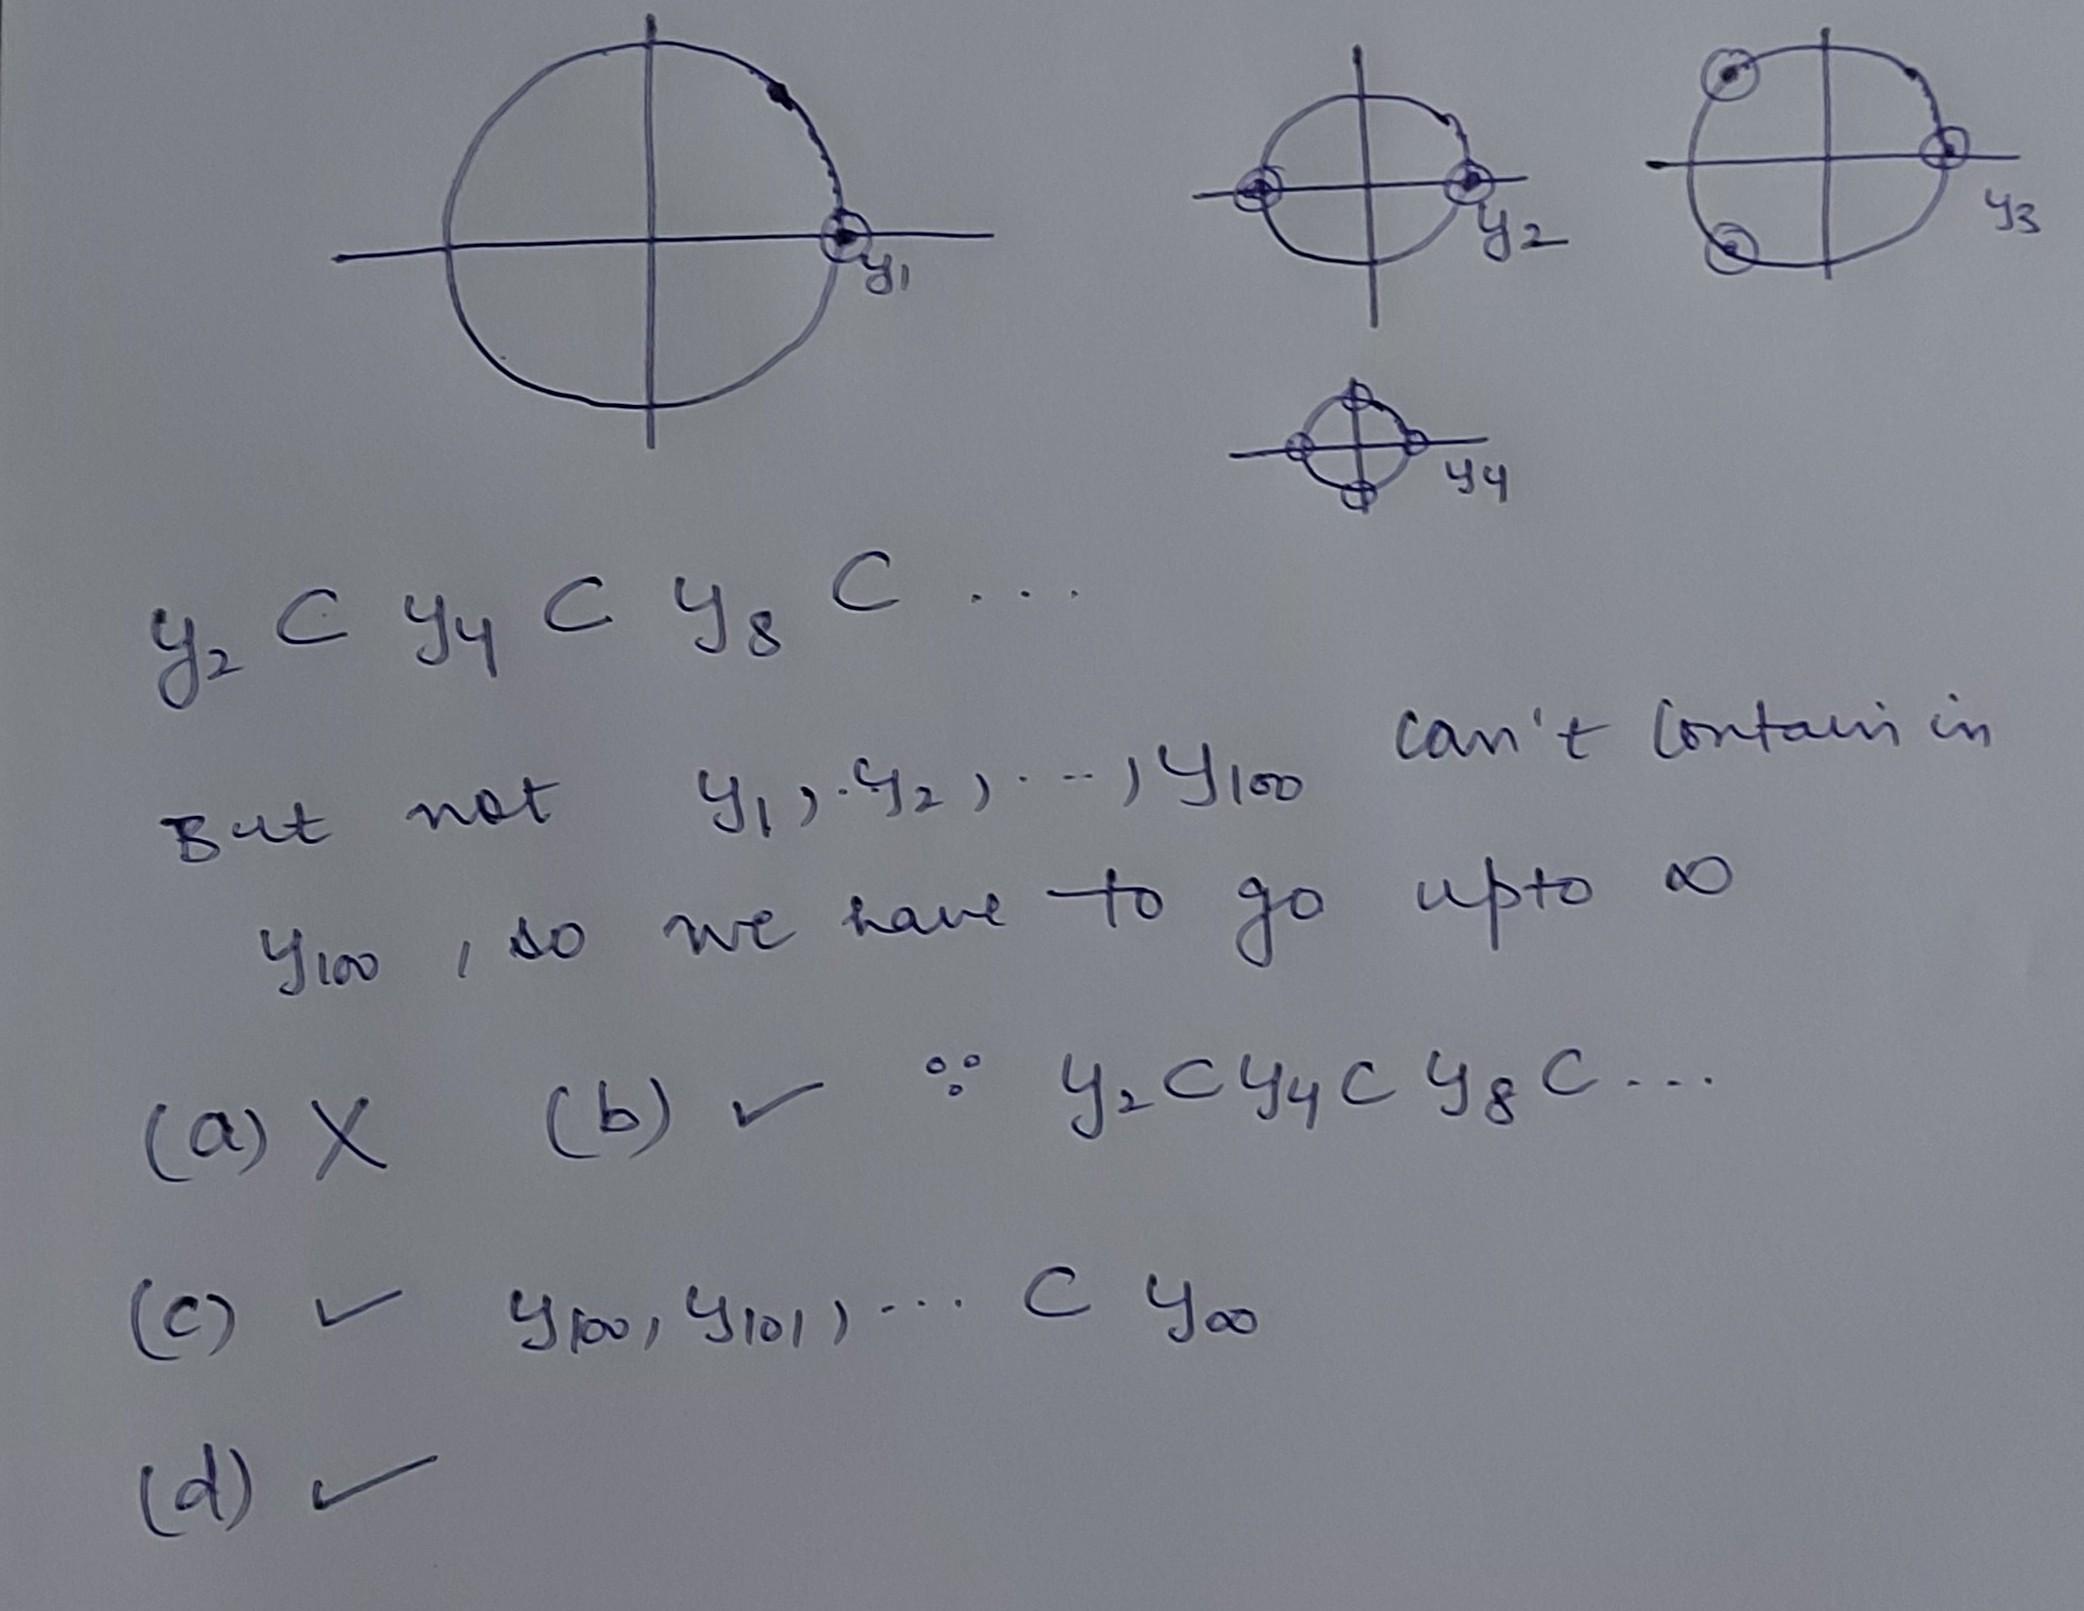 y₁
y₂
y₃
y₄
y₂ ⊂ y₄ ⊂ y₈ ⊂ ...
But not y₁, y₂, ..., y₁₀₀ can't contain in
y₁₀₀, so we have to go upto ∞
(a) X (b) ✓ ∵ y₂ ⊂ y₄ ⊂ y₈ ⊂ ...
(c) ✓ y₁₀₀, y₁₀₁, ... ⊂ y∞
(d) ✓